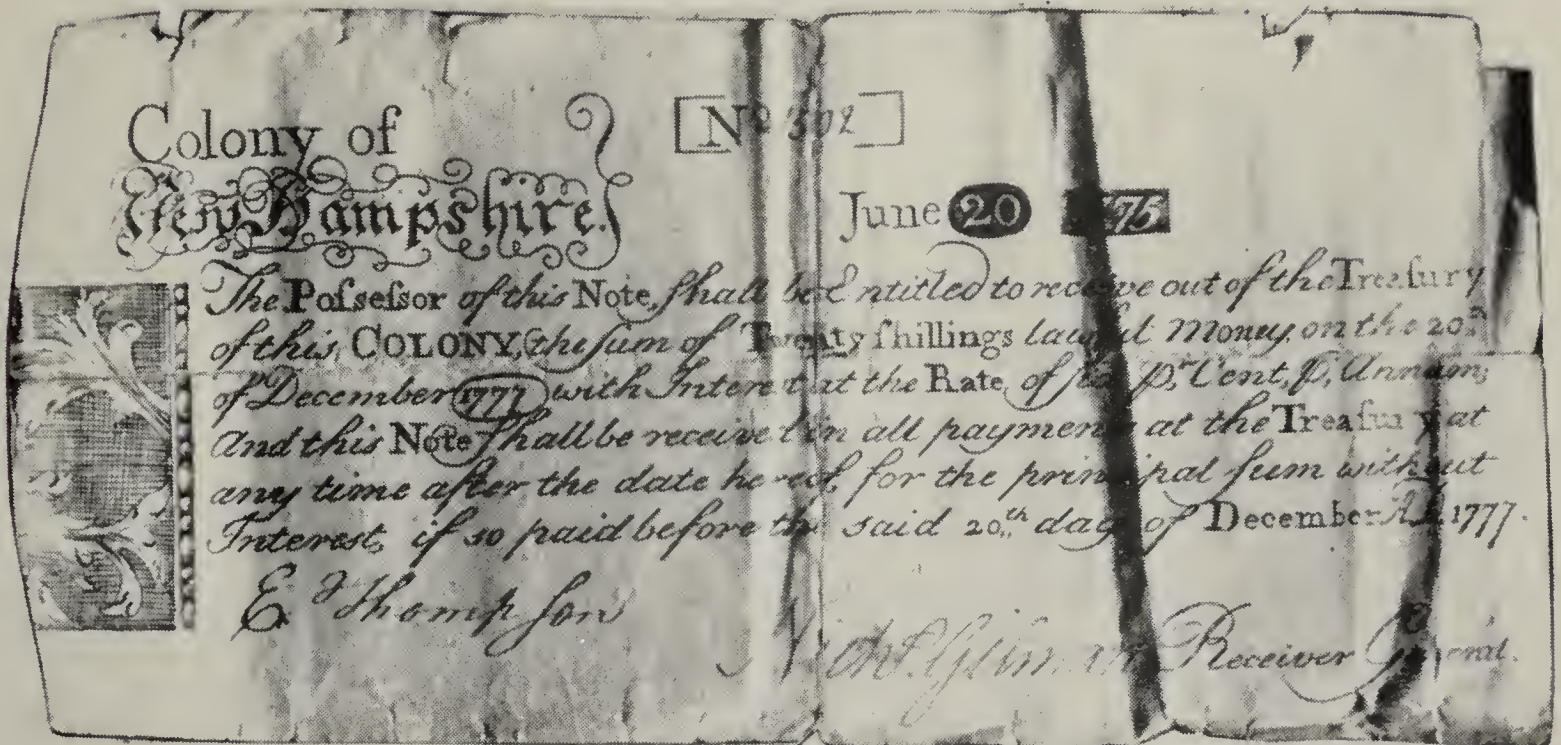 Colony of
New Hampshire.
No 502
June 20 1775
The Poſseſsor of this Note, ſhall be Entitled to receive out of the Treaſury
of this COLONY, the ſum of Twenty ſhillings lawful Money, on the 20th
of December 1777 with Interest at the Rate, of ſix pr Cent, p, Annum;
And this Note ſhall be received in all payments at the Treaſury at
any time after the date hereof, for the principal ſum without
Interest, if so paid before the said 20th day of December A.D. 1777.
E. Thompſon
Nichs. Gilman Receiver General.